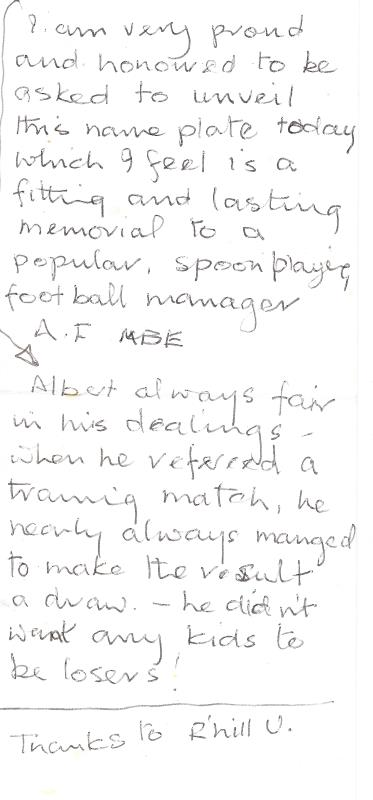 I am very proud
and honoured to be
asked to unveil
this name plate today
which I feel is a
fitting and lasting
memorial to a
popular, spoon playing
football manager
A.F MBE
Albert always fair
in his dealings -
when he refereed a
traning match, he
nearly always manged
to make the result
a draw. - he didn't
want any kids to
be losers!
Thanks to R'hill U.